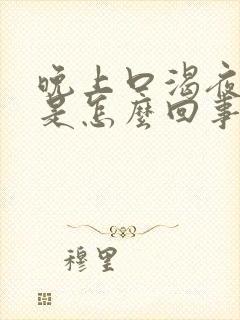 晚上口渴夜
是怎麼回事
穆里